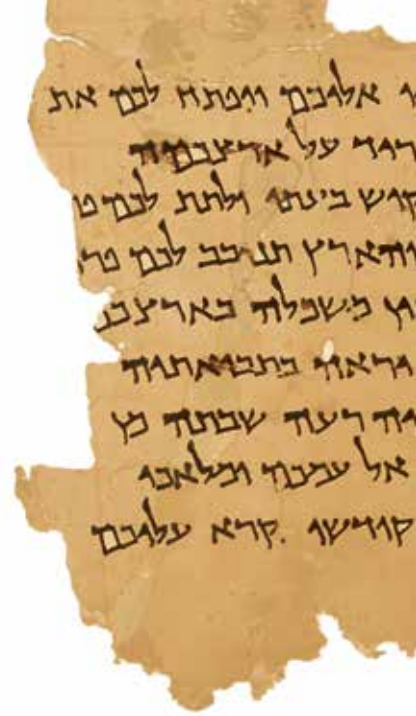 אליכם ויפתח לכם את
וריד על ארצכמה
קוש בעתו ולתת לכם פ
והארץ תנובב לכם פרי
ין משכלה בארצכ
יראה בתבואתיה
יה רעה שבתה מן
אל עמכם ומלאכי
קודשו נקרא עליכם